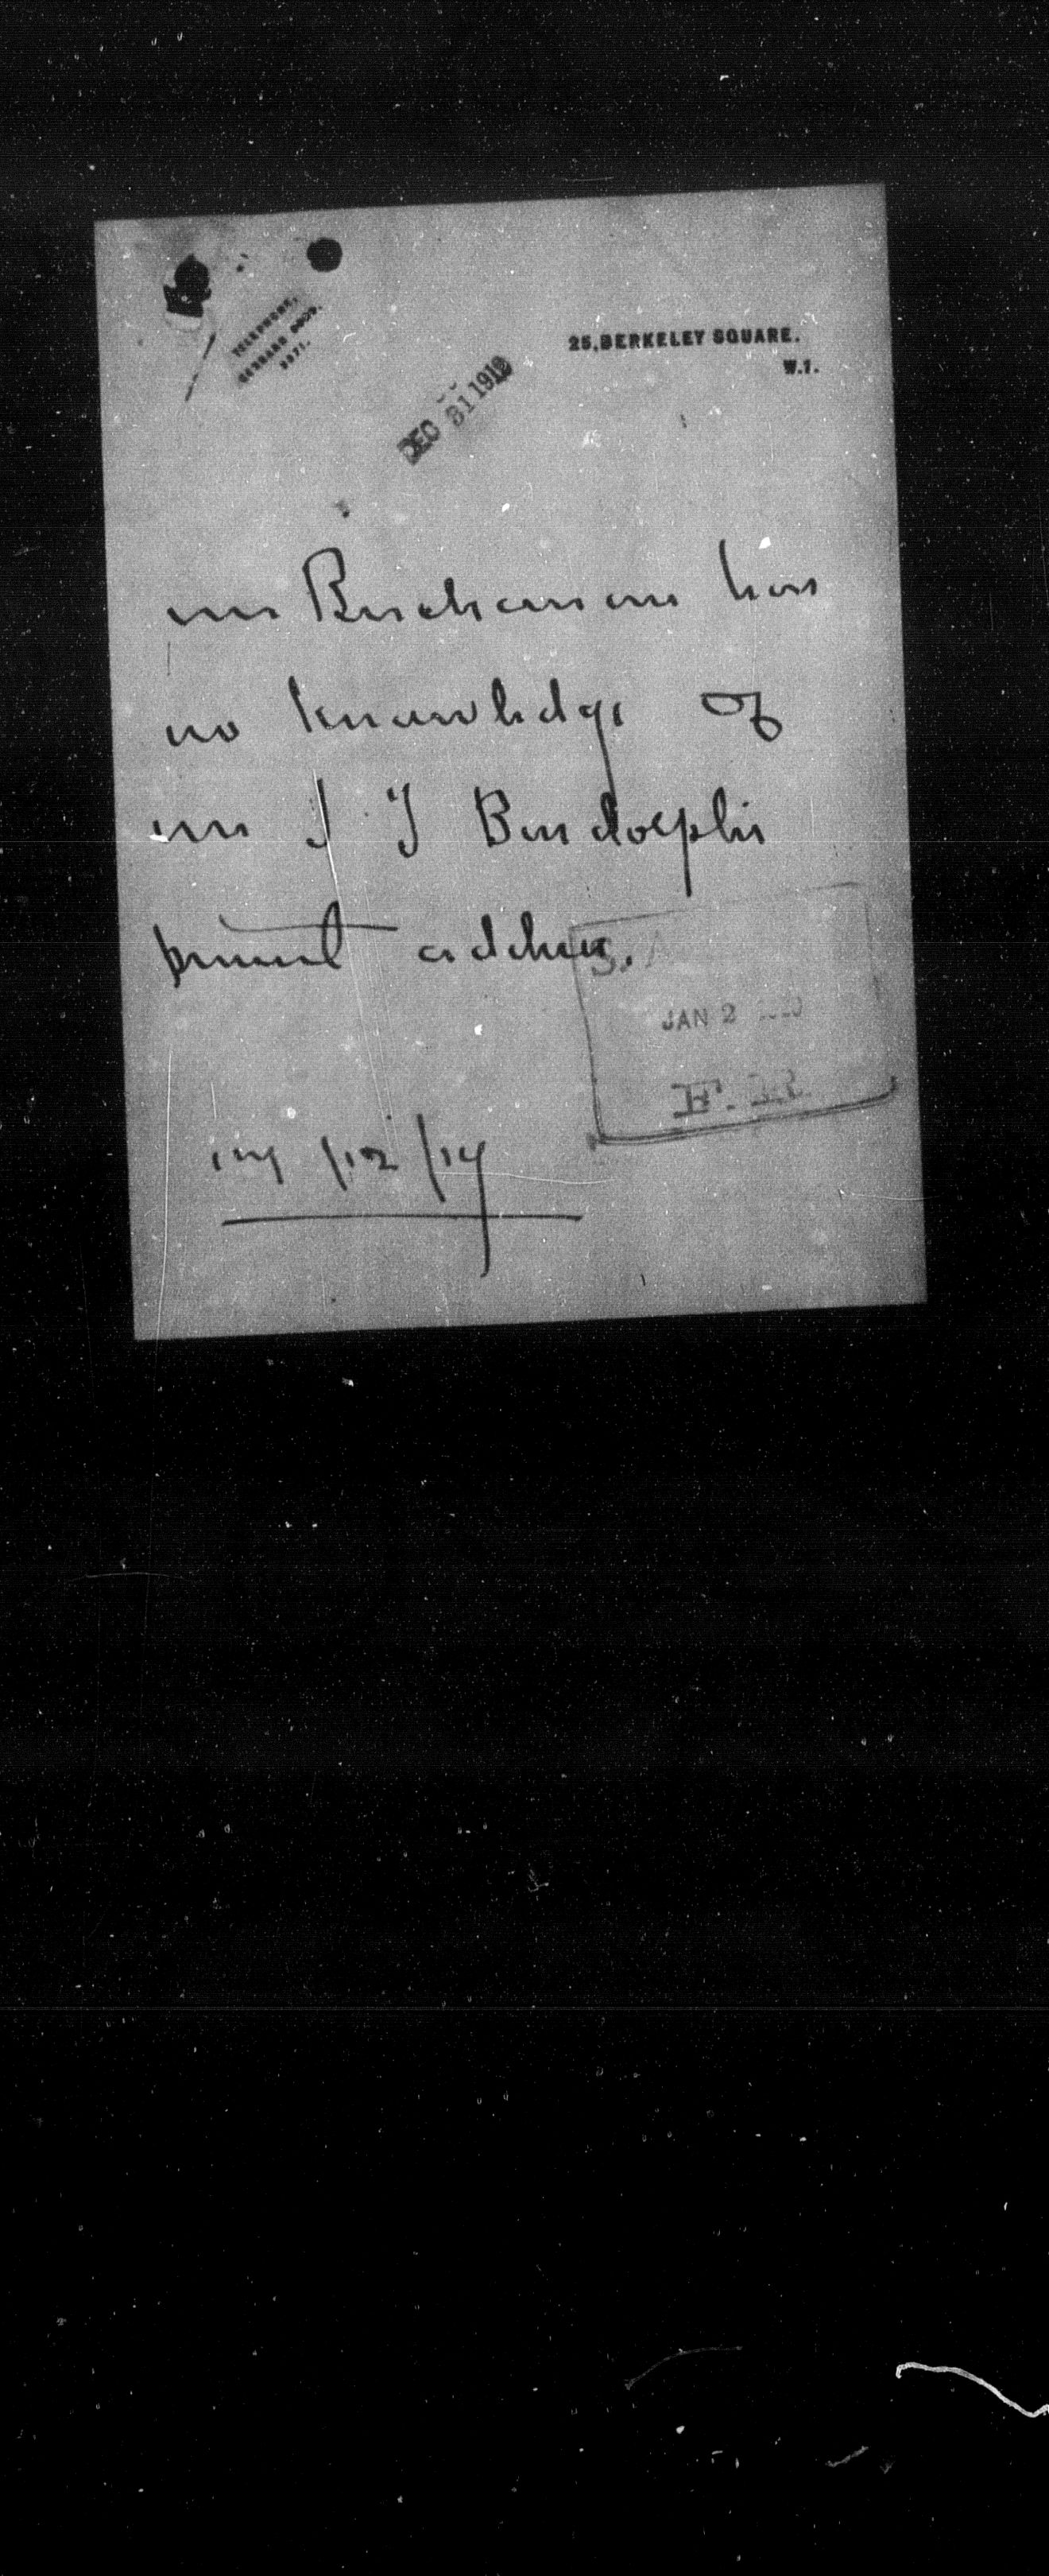 TELEPHONE,
GERRARD
3371.
25, BERKELEY SQUARE.
W.1.
DEC 31 1919
Mr Buchanan has
no knowledge of
Mr J J Bandolphs
present address.
/12/19
JAN 2
F. R.